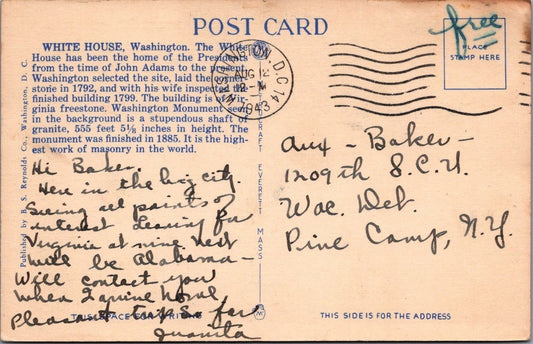 POST CARD
free
WHITE HOUSE, Washington. The White
House has been the home of the Presidents
from the time of John Adams to the present.
Washington selected the site, laid the corner-
storie in 1792, and with his wife inspected the
finished building 1799. The building is of Vir-
ginia freestone. Washington Monument seen
in the background is a stupendous shaft of
granite, 555 feet 5⅛ inches in height. The
monument was finished in 1885. It is the high-
est work of masonry in the world.
WASHINGTON, D.C. 14
AUG 12
12-M
1943
PLACE
STAMP HERE
Published by B. S. Reynolds Co., Washington, D. C.
EVERETT MASS
Hi Baker.
Here in the big city.
Seeing all points of
interest Leaving for
Virginia at nine. Next
will be Alabama —
Will contact you
when I arrive
Pleasant trip so far
Juanita
Aux - Baker -
1209th S.C.U.
Wac. Det.
Pine Camp, N.Y.
THIS SPACE FOR WRITING
THIS SIDE IS FOR THE ADDRESS